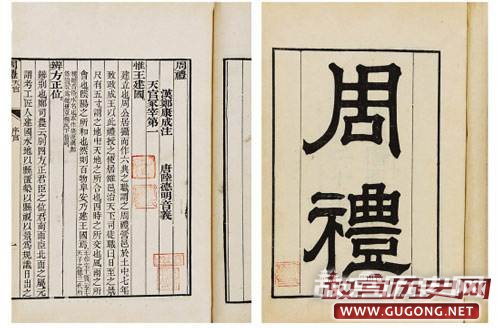 周禮
天官冢宰第一
漢鄭康成注 唐陸德明音義
惟王建國
建立也周公居攝而作六典之職謂之周禮營邑於土中七年
致政成王以此禮授之使居雒邑治天下司徒職曰日至之景
尺有五寸謂之地中天地之所合也四時之所交也風雨之所
會也陰陽之所和也然則百物阜安乃建王國焉
辨方正位
別也鄭司農云別四方正君臣之位君南面臣北面之屬
謂考工匠人建國水地以縣置槷以縣視以景為規識日出之
周禮
周禮
故宫历史网
WWW.GUGONG.NET